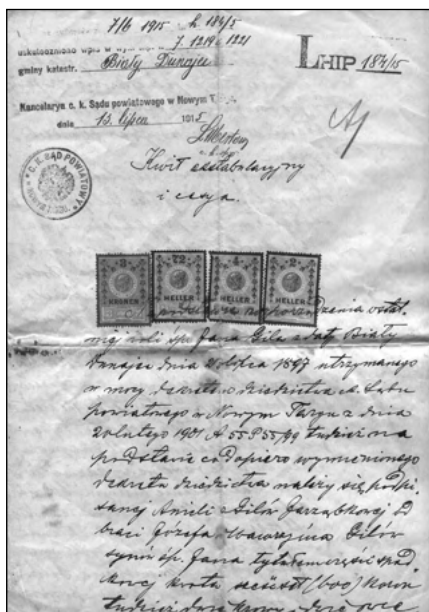 7/6 1915 h 184/5
uskuteczniono wpis w wyk. hip. 7. 1219 i 1221
gminy katastr. Biały Dunajec
LHIP 184/15
Kancelarya c. k. Sądu powiatowego w Nowym Targu
dnia 13 lipca 1915
C. K. SĄD POWIATOWY
Kwit exstabulacyjny
i cesya.
3 72 4 2
KRONEN HELLER HELLER HELLER
rozporządzenia ostat
niej woli śp. Jana Gila z daty Biały
Dunajec dnia 20 lipca 1897 utrzymanego
w mocy dekretem dziedzictwa c.k. Sądu
powiatowego w Nowym Targu z dnia
20 lutego 1901 A 55 P 55/99 tudzież na
podstawie co dopiero wymienionego
dekretu dziedzictwa należy się podpi
sanej Anieli z Gilów Jarząbkowej od
braci Józefa i Wawrzyńca Gilów
synów śp. Jana tytułem części spad
kowej kwota sześćset (600) koron
tudzież dwie krowy